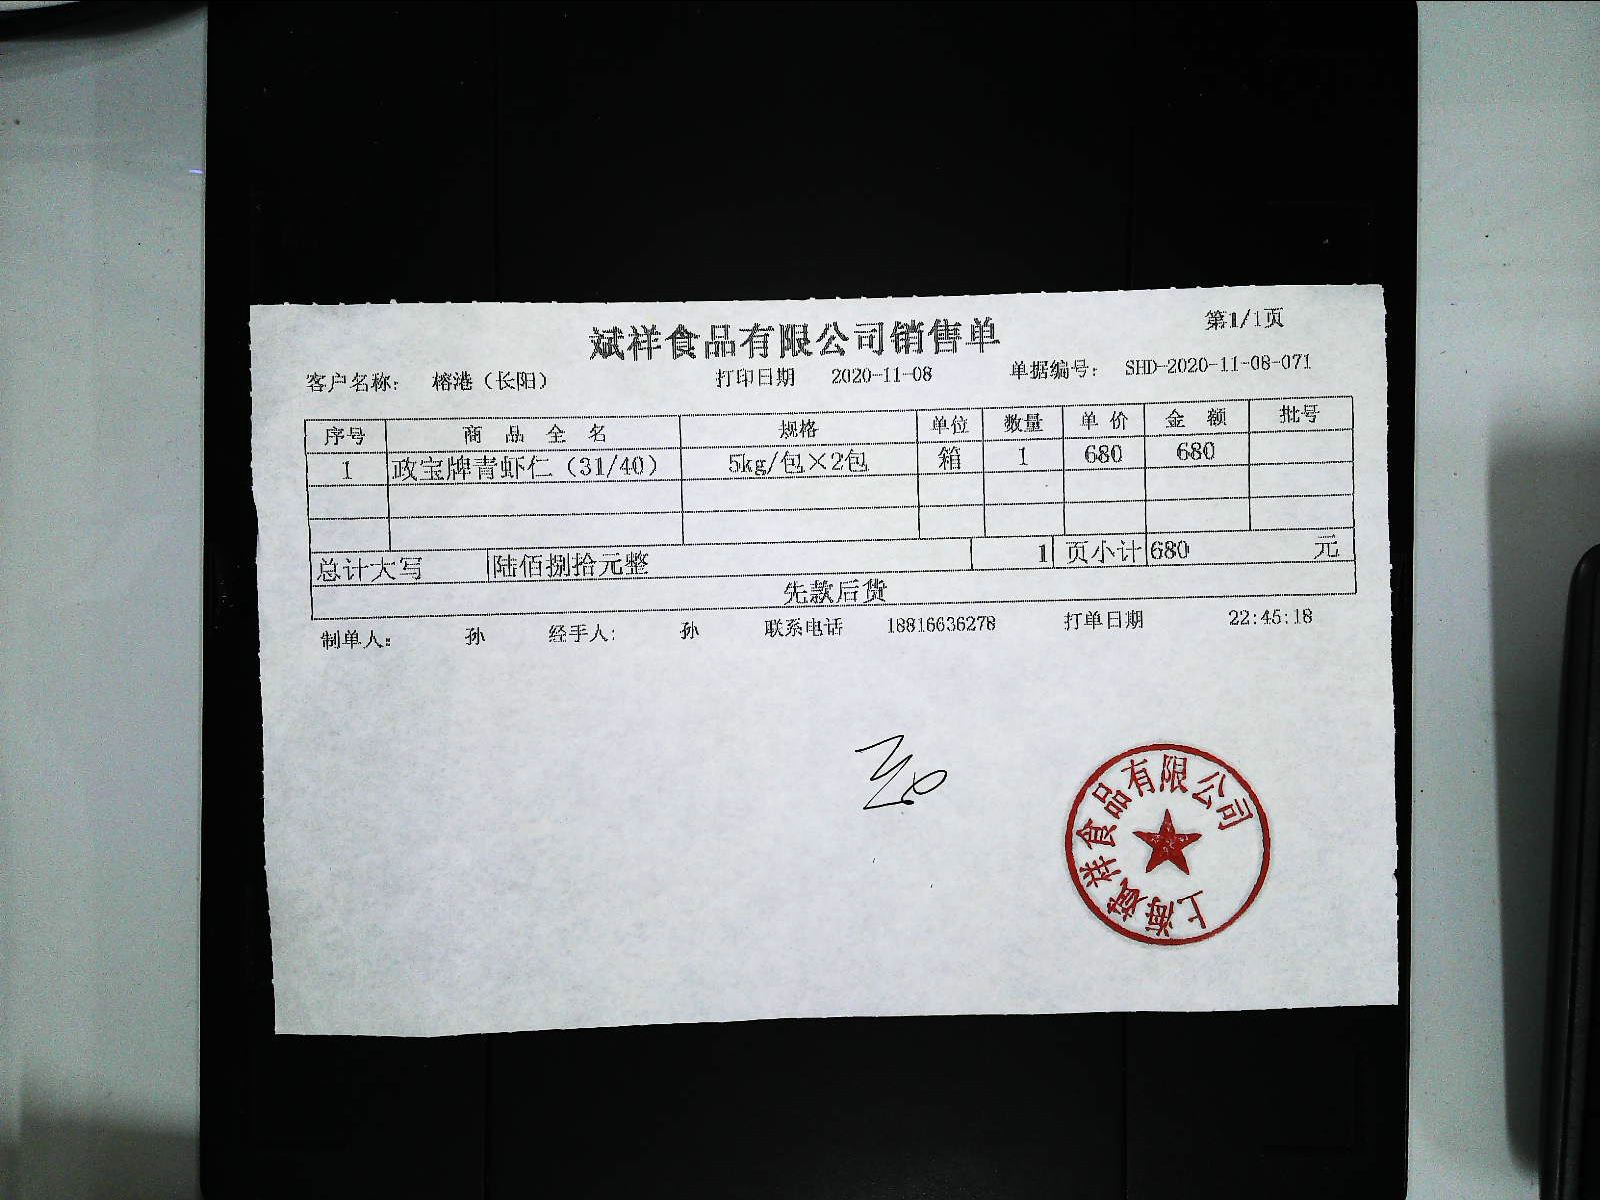 第1/1页
斌祥食品有限公司销售单
客户名称： 榕港（长阳） 打印日期 2020-11-08 单据编号： SHD-2020-11-08-071
序号 商品全名 规格 单位 数量 单价 金额 批号
1 政宝牌青虾仁（31/40） 5kg/包×2包 箱 1 680 680
总计大写 陆佰捌拾元整 1 页小计 680 元
先款后货
制单人： 孙 经手人： 孙 联系电话 18816636278 打单日期 22:45:18
上海斌祥食品有限公司